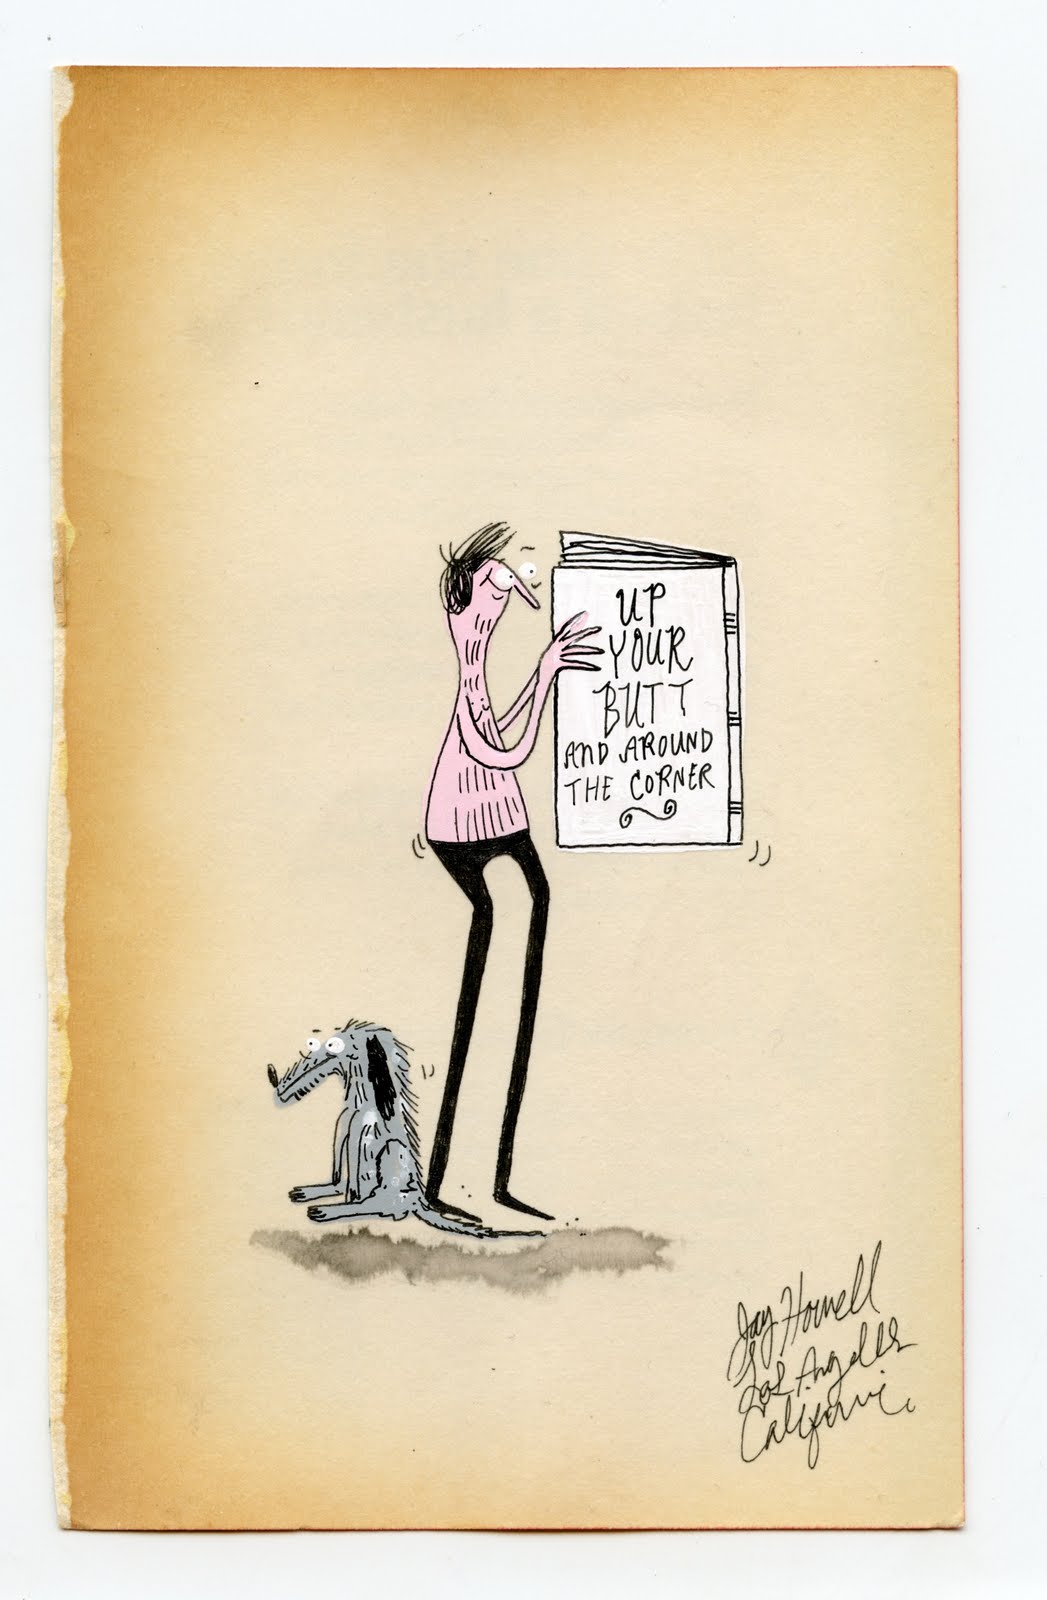 UP
YOUR
BUTT
AND AROUND
THE CORNER
Jay Howell
Los Angeles
California